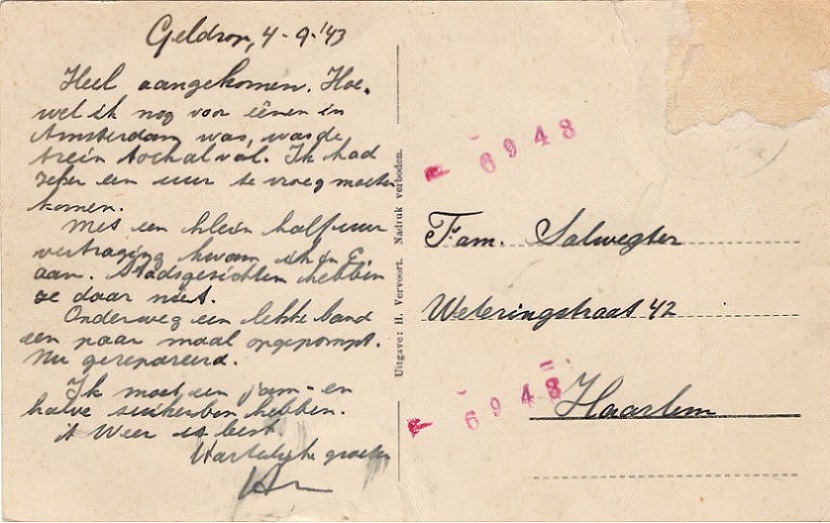 Geldrop, 4-9-'43
Heel aangekomen. Hoe-
wel ik nog voor éénen in
Amsterdam was, was de
trein toch al vol. Ik had
zeker een uur te vroeg moeten
komen.
Met een klein half uur
vertraging kwam ik in E.
aan. Stadsgezichten hebben
ze daar niet.
Onderweg een lekke band
een paar maal opgepompt.
Nu gerepareerd.
Ik moet een jam- en
halve suikerbon hebben.
Weer is best.
Hartelijke groeten
Uitgave: H. Vervoort. Nadruk verboden.
6948
Fam. Salwegter
Weteringstraat 42
6948
Haarlem